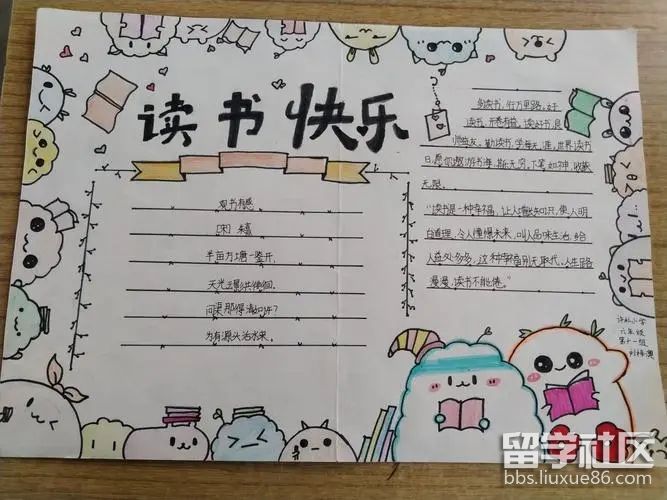 读书快乐
观书有感
[宋] 朱熹
半亩方塘一鉴开,
天光云影共徘徊。
问渠那得清如许?
为有源头活水来。
多读书,行万里路,好
读书,开卷有益,读好书,良
师益友,勤读书,学海无涯,世界读书
日,愿你遨游书海,乐无穷,下笔如神,收获
无限。
"读书是一种幸福,让人增长知识,使人明
白道理,令人憧憬未来,叫人品味生活,给
人益处多多,这种幸福别无取代,人生路
漫漫,读书不能倦。"
小学
六年级
第十一组
留学社区
bbs.liuxue86.com